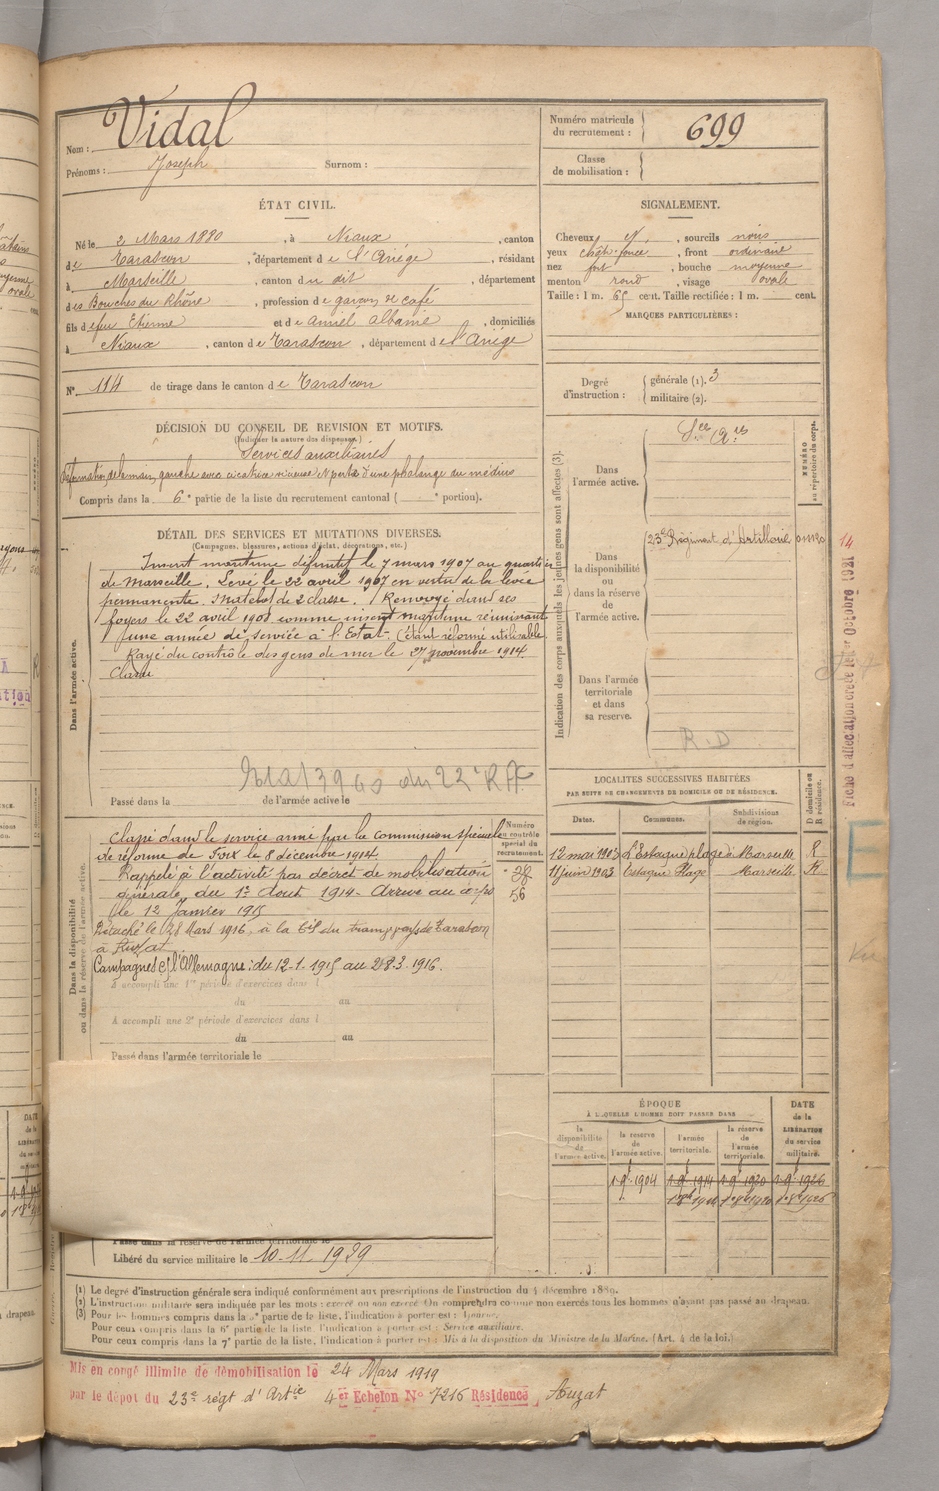 Nom : Vidal
Prénoms : Joseph Surnom :
Numéro matricule
du recrutement : 699
Classe
de mobilisation :
ÉTAT CIVIL.
Né le 2 Mars 1880, à Niaux, canton
de Tarascon, département de l'Ariége, résidant
à Marseille, canton du dit, département
des Bouches du Rhône, profession de garçon de café
fils de feu Etienne et de Amiel Albanie, domiciliés
à Niaux, canton de Tarascon, département de l'Ariége
N° 114 de tirage dans le canton de Tarascon
SIGNALEMENT.
Cheveux N, sourcils noirs
yeux chât-foncé, front ordinaire
nez fort, bouche moyenne
menton rond, visage ovale
Taille : 1 m. 65 cent. Taille rectifiée : 1 m. cent.
MARQUES PARTICULIÈRES :
Degré
d'instruction :
générale (1). 3
militaire (2).
DÉCISION DU CONSEIL DE REVISION ET MOTIFS.
(Indiquer la nature des dispenses.)
Services auxiliaires
déformation de la main gauche avec cicatrice vicieuse et perte d'une phalange au médius
Compris dans la 6e partie de la liste du recrutement cantonal ( e portion).
DÉTAIL DES SERVICES ET MUTATIONS DIVERSES.
(Campagnes, blessures, actions d'éclat, décorations, etc.)
Dans l'armée active.
Inscrit maritime définitif le 7 mars 1907 au quartier
de Marseille. Levé le 22 avril 1907 en vertu de la levée
permanente. Matelot de 2 classe. Renvoyé dans ses
foyers le 22 avril 1908 comme inscrit maritime réunissant
une année de service à l'Etat. (étant réformé utilisable
Rayé du contrôle des gens de mer le 27 novembre 1914.
Classé
du 22e RA
Passé dans la de l'armée active le
Indication des corps auxquels les jeunes gens sont affectés (3).
Dans
l'armée active.
Sces Aires
NUMÉRO
au répertoire du corps.
Dans
la disponibilité
ou
dans la réserve
de
l'armée active.
23e Régiment d'Artillerie
Dans l'armée
territoriale
et dans
sa reserve.
R.D
14
Fiche d'affectation créée le 1er Octobre 1921
LOCALITÉS SUCCESSIVES HABITÉES
PAR SUITE DE CHANGEMENTS DE DOMICILE OU DE RÉSIDENCE.
Dates. Communes. Subdivisions
de région. D domicile ou
R résidence.
12 mai 1903 L'Estaque plage à Marseille R
11 juin 1903 Estaque Plage Marseille R
Dans la disponibilité
ou dans la réserve de l'armée active.
Numéro
au contrôle
spécial du
recrutement.
56
Classé dans le service armé par la commission spéciale
de réforme de Foix le 8 décembre 1914.
Rappelé à l'activité par décret de mobilisation
générale du 1er Aout 1914. Arrivé au corps
le 12 janvier 1915
Détaché le 28 Mars 1916, à la Cie du tramways de Tarascon
à Auzat.
Campagnes c/ l'Allemagne : du 12-1-1915 au 28-3-1916.
A accompli une 1re période d'exercices dans l
du au
A accompli une 2e période d'exercices dans l
du au
Passé dans l'armée territoriale le
ÉPOQUE
À LAQUELLE L'HOMME DOIT PASSER DANS
la
disponibilité
de
l'armée active.
la réserve
de
l'armée active.
l'armée
territoriale.
la réserve
de
l'armée
territoriale.
DATE
de la
LIBÉRATION
du service
militaire.
1-9-1904 1-9-1914 1-9-1920 1-9-1926
Passé dans la réserve de l'armée territoriale le
Libéré du service militaire le 10-11-1929
(1) Le degré d'instruction générale sera indiqué conformément aux prescriptions de l'instruction du 4 décembre 1889.
(2) L'instruction militaire sera indiquée par les mots : exercé ou non exercé. On comprendra comme non exercés tous les hommes n'ayant pas passé au drapeau.
(3) Pour les hommes compris dans la 2e partie de la liste, l'indication à porter est : Ajourné.
Pour ceux compris dans la 6e partie de la liste, l'indication à porter est : Service auxiliaire.
Pour ceux compris dans la 7e partie de la liste, l'indication à porter est : Mis à la disposition du Ministre de la Marine. (Art. 4 de la loi.)
Mis en congé illimité de démobilisation le 24 Mars 1919
par le dépôt du 23e régt d'Artie 4er Echelon N° 7216 Résidence Auzat